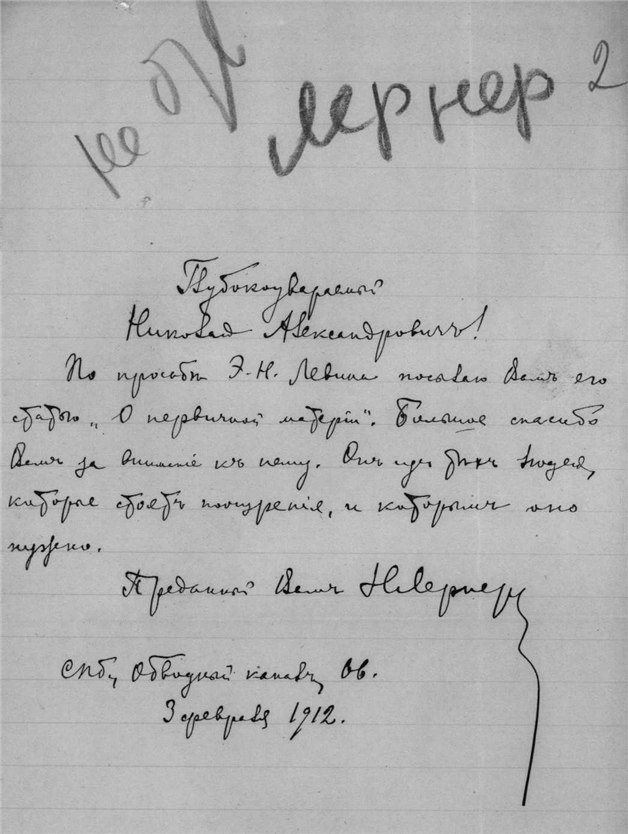 Лернер 2
Глубокоуважаемый
Николай Александровичъ!
По просьбѣ Э. Н. Левина посылаю Вамъ его
статью „О первичной матерiи". Большое спасибо
Вамъ за вниманiе къ нему. Онъ изъ тѣхъ людей,
которые стоятъ поощренiя, и которымъ оно
нужно.
Преданный Вамъ Н. Лернеръ
СПб, Обводный каналъ,
3 февраля 1912.